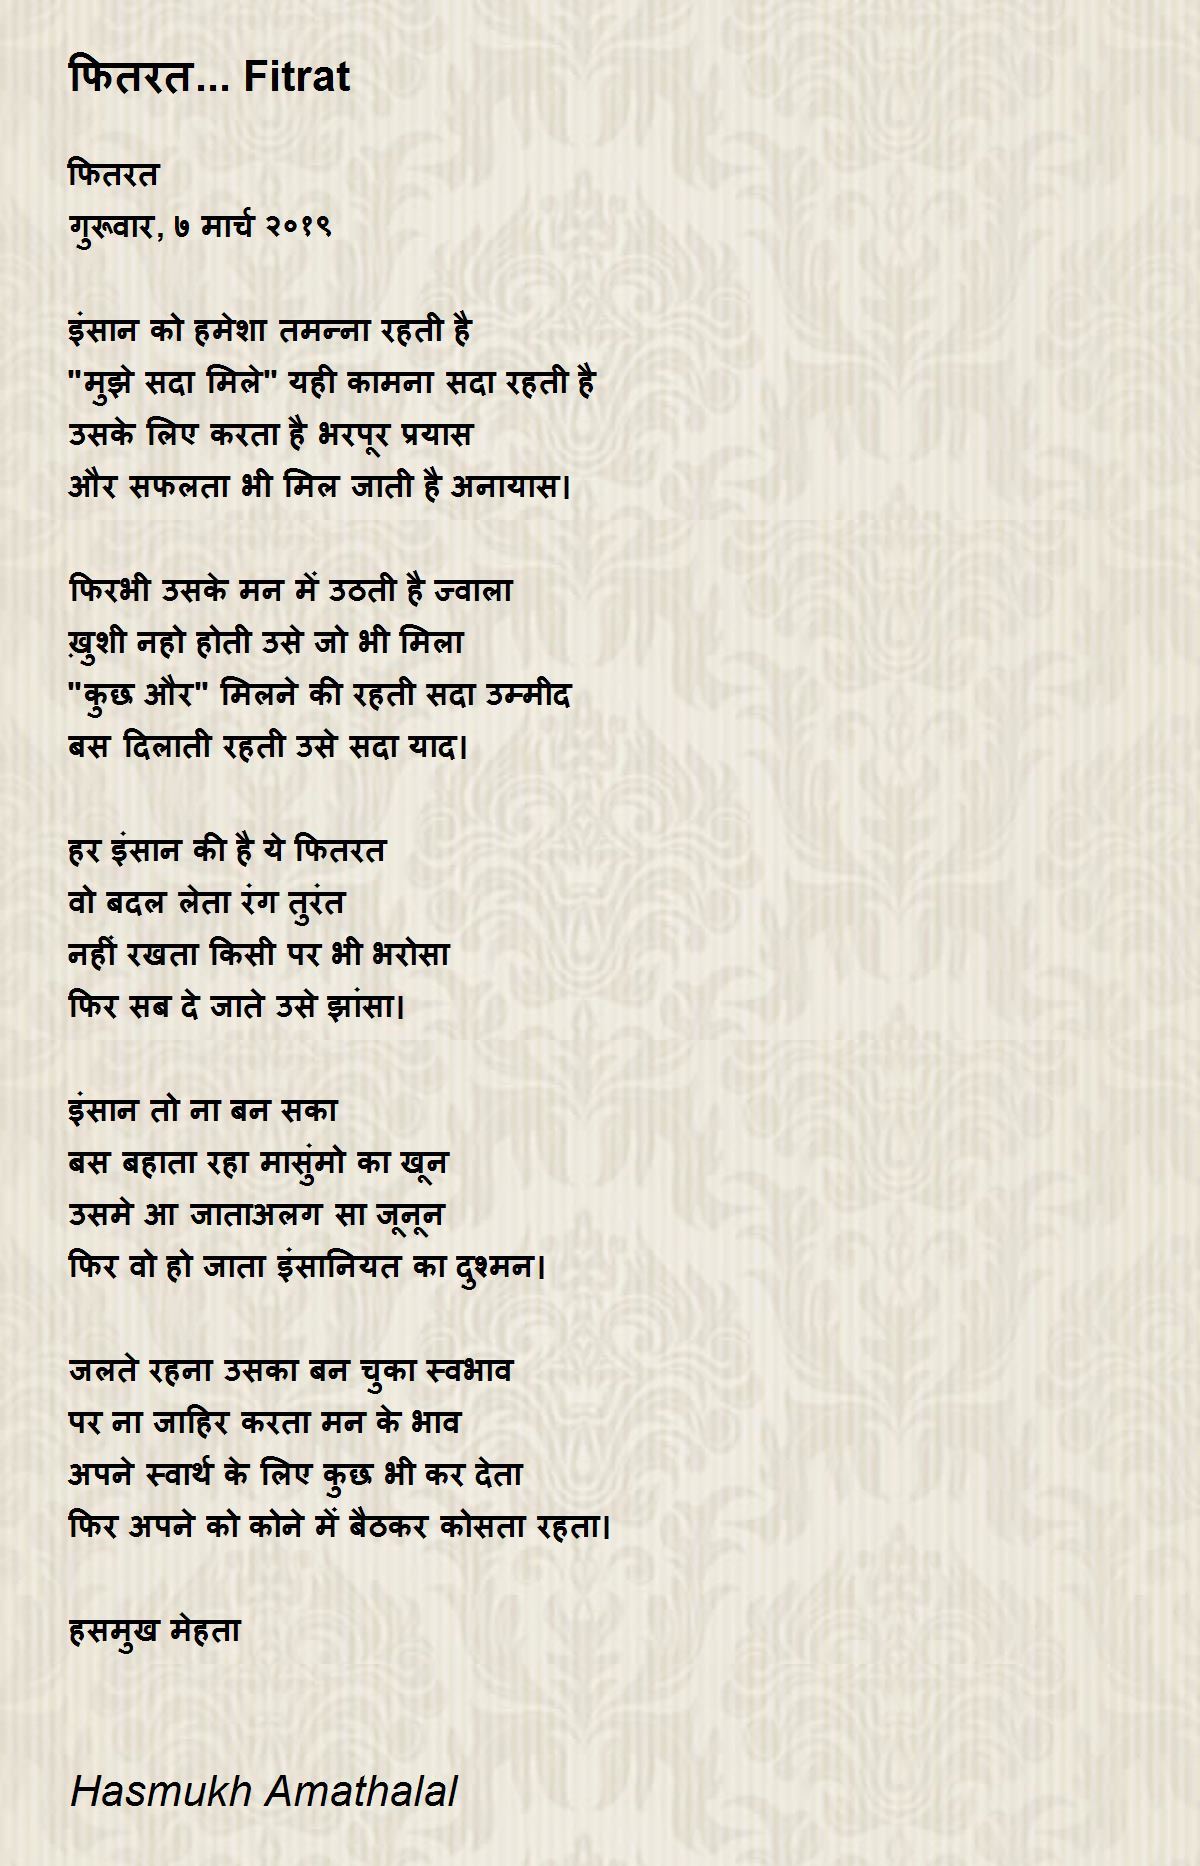 फितरत... Fitrat
फितरत
गुरूवार, ७ मार्च २०१९
इंसान को हमेशा तमन्ना रहती है
"मुझे सदा मिले" यही कामना सदा रहती है
उसके लिए करता है भरपूर प्रयास
और सफलता भी मिल जाती है अनायास।
फिरभी उसके मन में उठती है ज्वाला
ख़ुशी नहो होती उसे जो भी मिला
"कुछ और" मिलने की रहती सदा उम्मीद
बस दिलाती रहती उसे सदा याद।
हर इंसान की है ये फितरत
वो बदल लेता रंग तुरंत
नहीं रखता किसी पर भी भरोसा
फिर सब दे जाते उसे झांसा।
इंसान तो ना बन सका
बस बहाता रहा मासुंमो का खून
उसमे आ जाताअलग सा जूनून
फिर वो हो जाता इंसानियत का दुश्मन।
जलते रहना उसका बन चुका स्वभाव
पर ना जाहिर करता मन के भाव
अपने स्वार्थ के लिए कुछ भी कर देता
फिर अपने को कोने में बैठकर कोसता रहता।
हसमुख मेहता
Hasmukh Amathalal